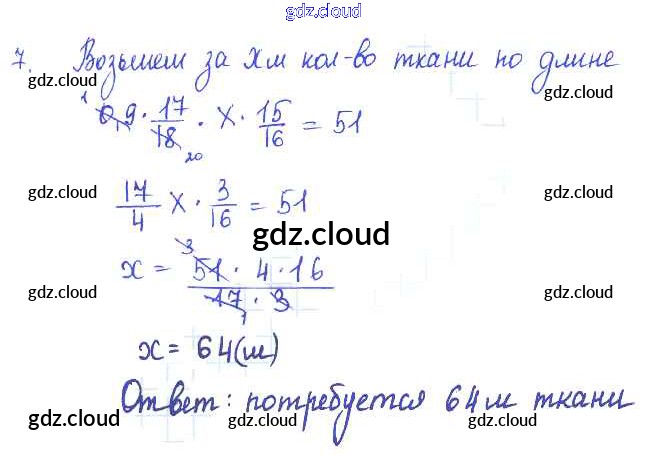 gdz.cloud
7. Возьмем за x м кол-во ткани по длине
gdz.cloud gdz.cloud
0,9 · 17/18 · x · 15/16 = 51
1 20
17/4 x · 3/16 = 51
gdz.cloud gdz.cloud
gdz.cloud
x = 51 · 4 · 16 / 17 · 3
3 1
gdz.cloud gdz.cloud
x = 64 (м)
Ответ: потребуется 64 м ткани
gdz.cloud gdz.cloud
gdz.cloud